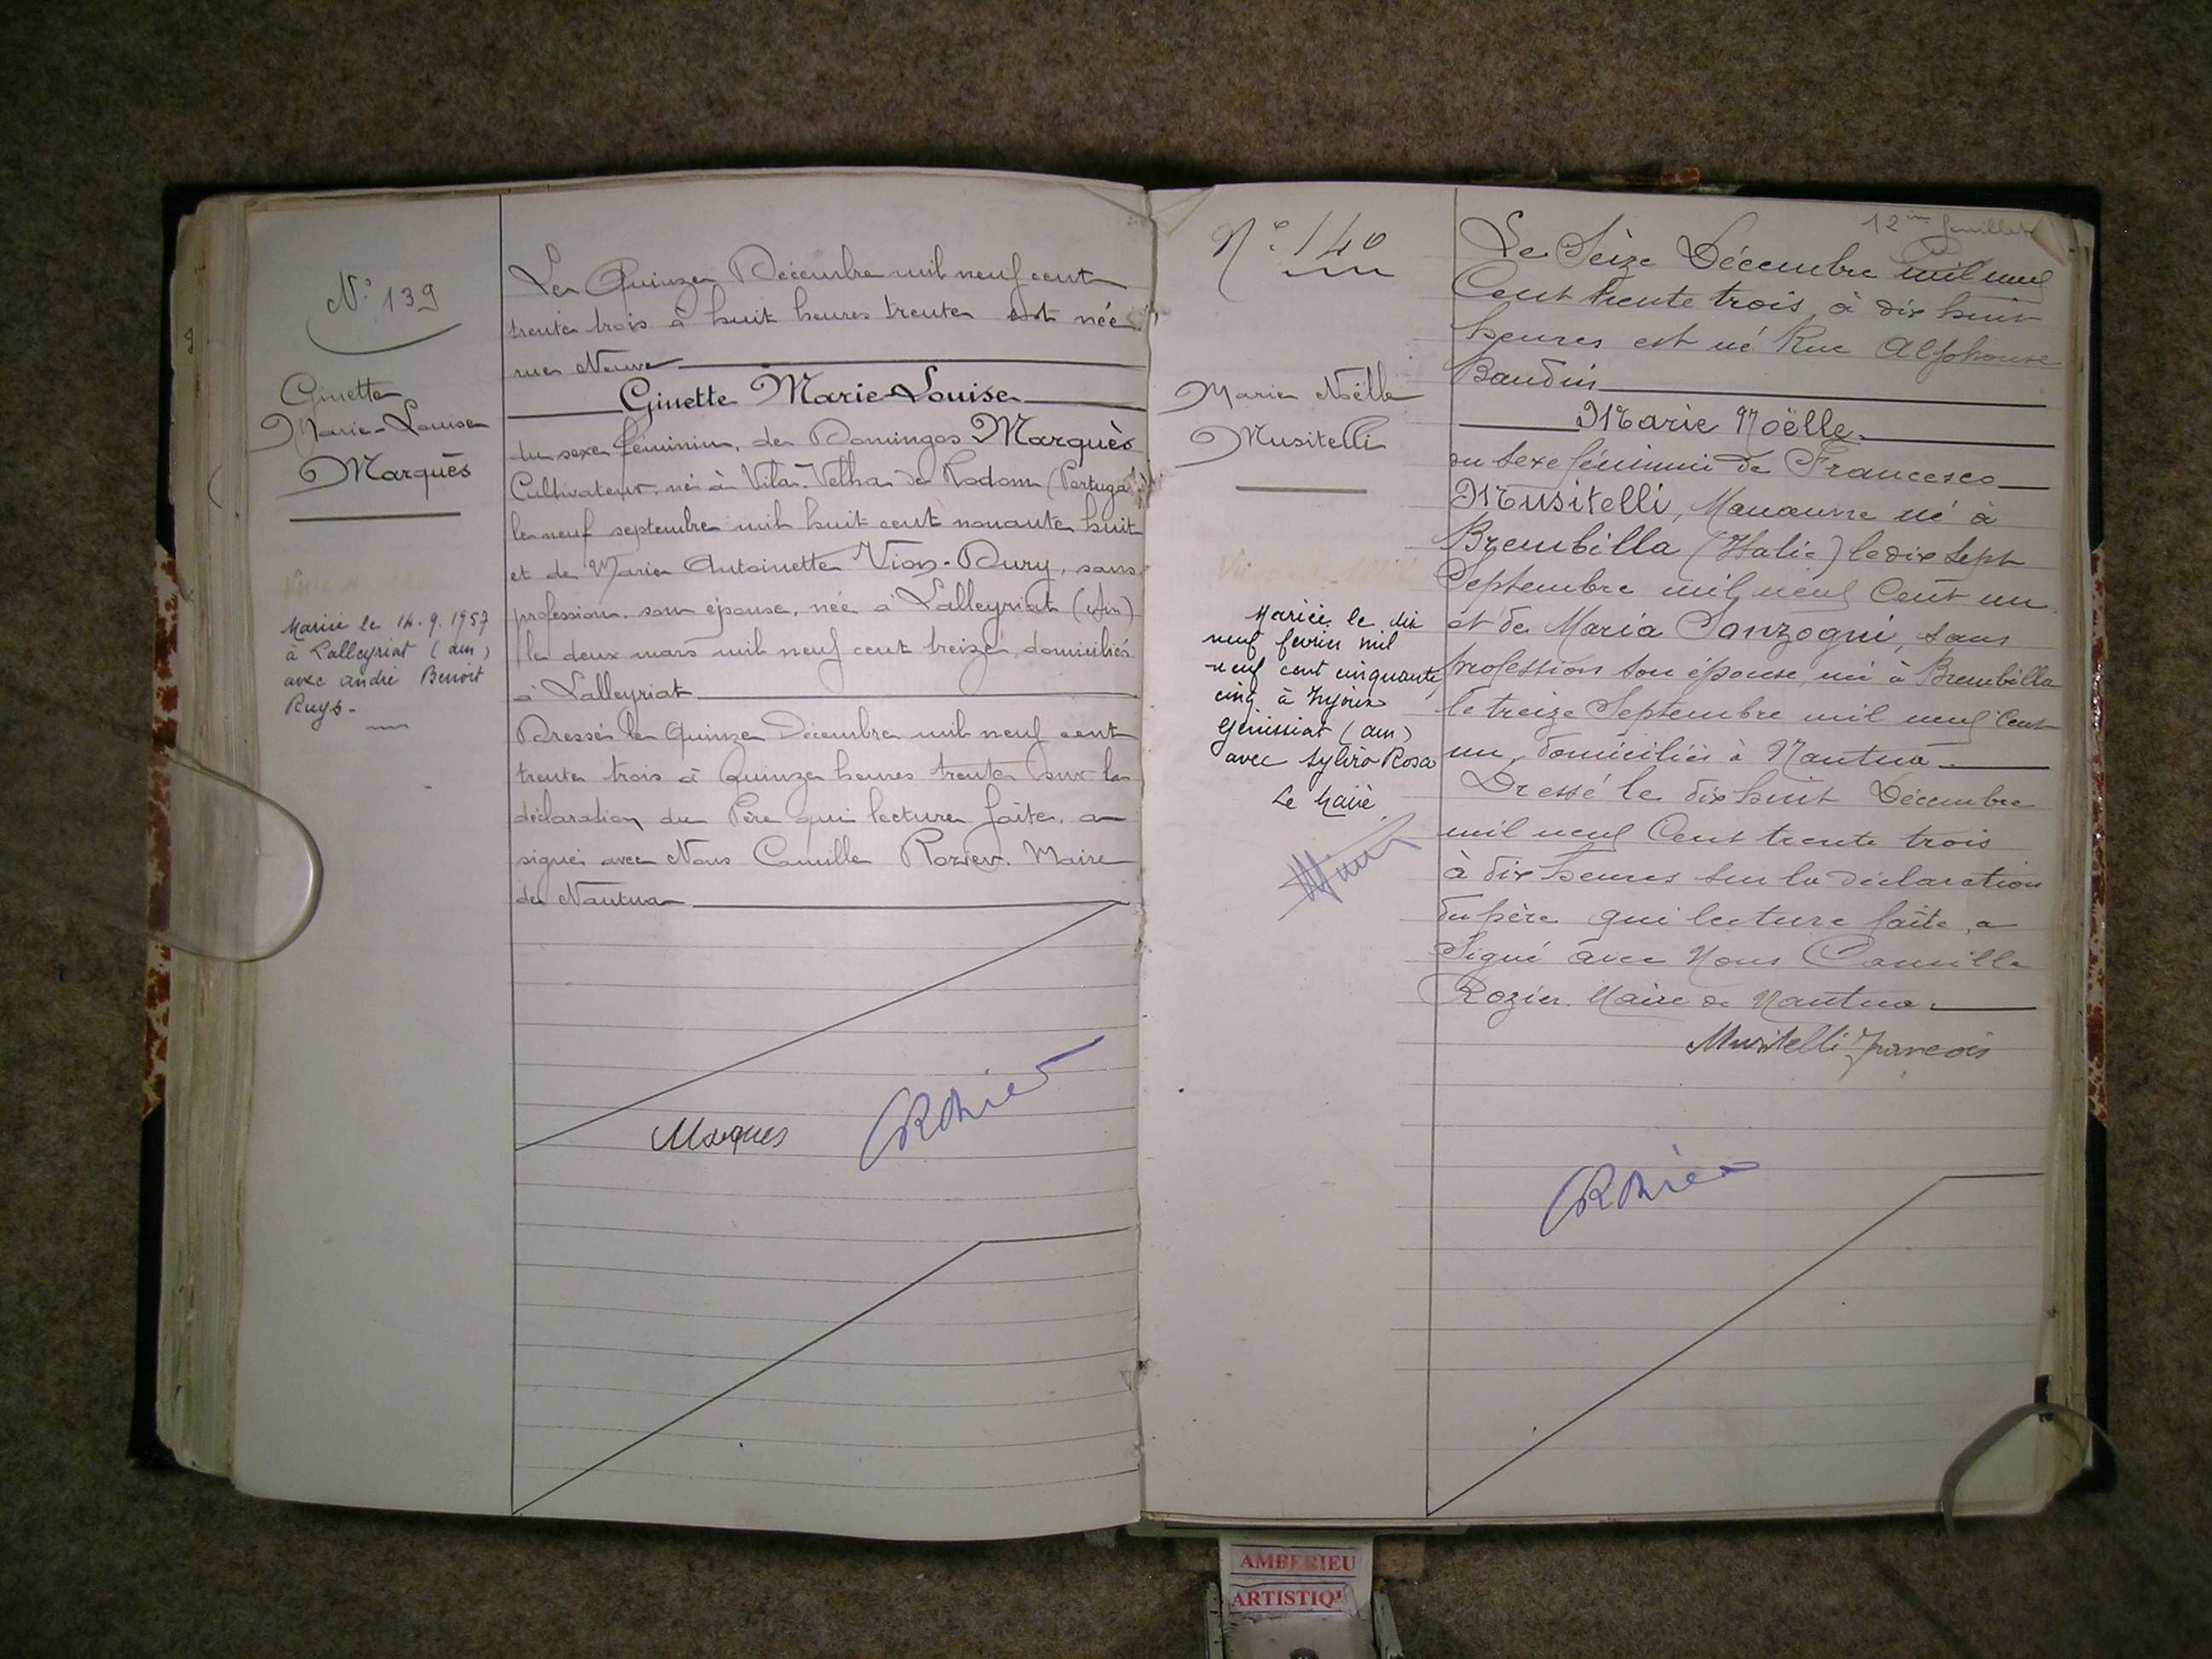 N° 139
Ginette
Marie-Louise
Marquès
Mariée le 14.9.1957
à Lalleyriat (Ain)
avec andré Benoit
Ruys-
Le Quinze Décembre mil neuf cent
trente trois à huit heures trente est née
rue Neuve
Ginette Marie-Louise
du sexe féminin, de Domingos Marquès
Cultivateur, né à Vila-Velha de Rodom (Portugal)
le neuf septembre mil huit cent nonante huit
et de Marie Antoinette Vion-Dury, sans
profession son épouse, née à Lalleyriat (Ain)
le deux mars mil neuf cent treize, domiciliés
à Lalleyriat
Dressé le Quinze Décembre mil neuf cent
trente trois à quinze heures trente sur la
déclaration du Père qui lecture faite, a
signé avec Nous Camille Rozier, Maire
de Nantua
Marques
CRozier
12me feuillet
N° 140
Marie Noëlle
Musitelli
Mariée le dix
neuf février mil
neuf cent cinquante
cinq à Injoux
Génissiat (ain)
avec Sylvio Rosa
Le Maire
Le Seize Décembre mil neuf
Cent trente trois à dix huit
heures est né Rue Alphonse
Baudin
Marie Noëlle
du sexe féminin de Francesco
Musitelli, Manœuvre né à
Brembilla (Italie) le dix sept
Septembre mil neuf Cent un
et de Maria Sanzogni, sans
profession son épouse, né à Brembilla
le treize Septembre mil neuf Cent
un, domiciliés à Nantua
Dressé le dix huit Décembre
mil neuf Cent trente trois
à dix heures sur la déclaration
du père qui lecture faite, a
Signé avec Nous Camille
Rozier Maire de Nantua.
Musitelli François
CRozier
AMBERIEU
ARTISTIQU